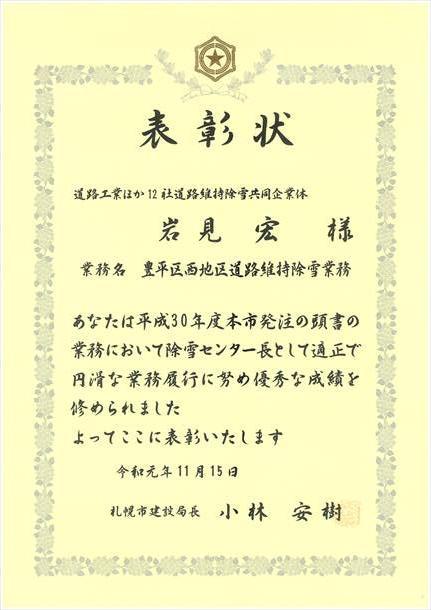 表彰状
道路工業ほか12社道路維持除雪共同企業体
岩見 宏 様
業務名 豊平区西地区道路維持除雪業務
あなたは平成30年度本市発注の頭書の
業務において除雪センター長として適正で
円滑な業務履行に努め優秀な成績を
修められました
よってここに表彰いたします
令和元年11月15日
札幌市建設局長 小林 安樹